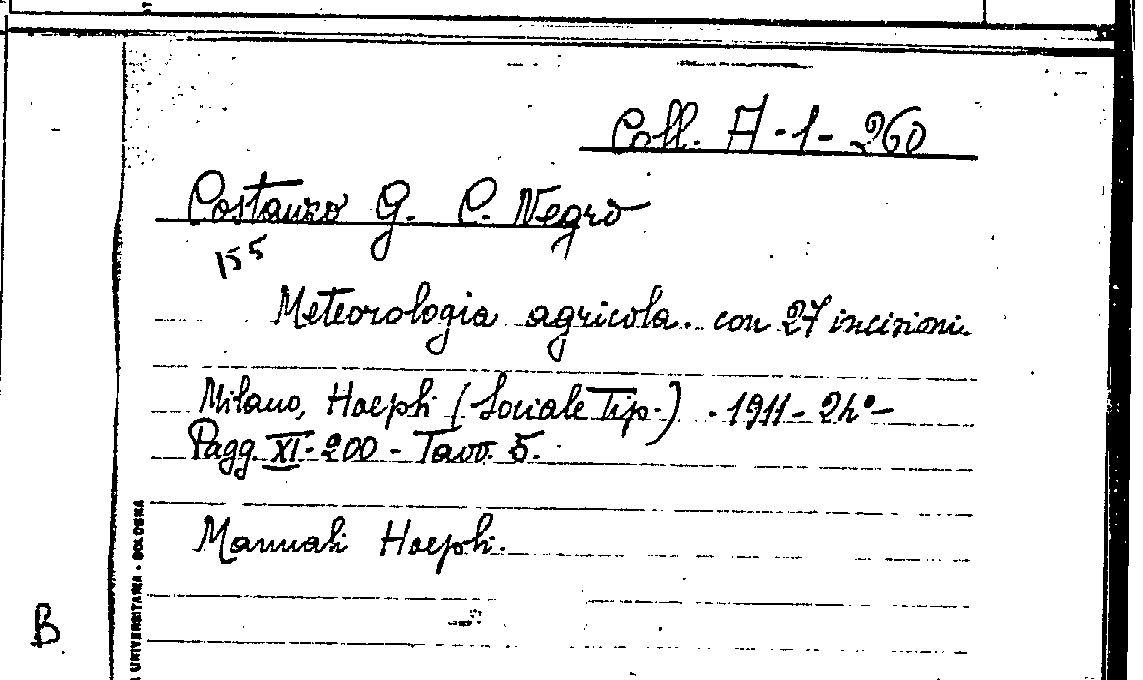 Coll. A-1-260
Costanzo G. C. Negro
155
Meteorologia agricola. con 27 incisioni.
Milano, Hoepli (Sociale Tip.) - 1911 - 24° -
Pagg. XI-200 - Tavv. 5.
Manuali Hoepli.
B
UNIVERSITARIA • BOLOGNA